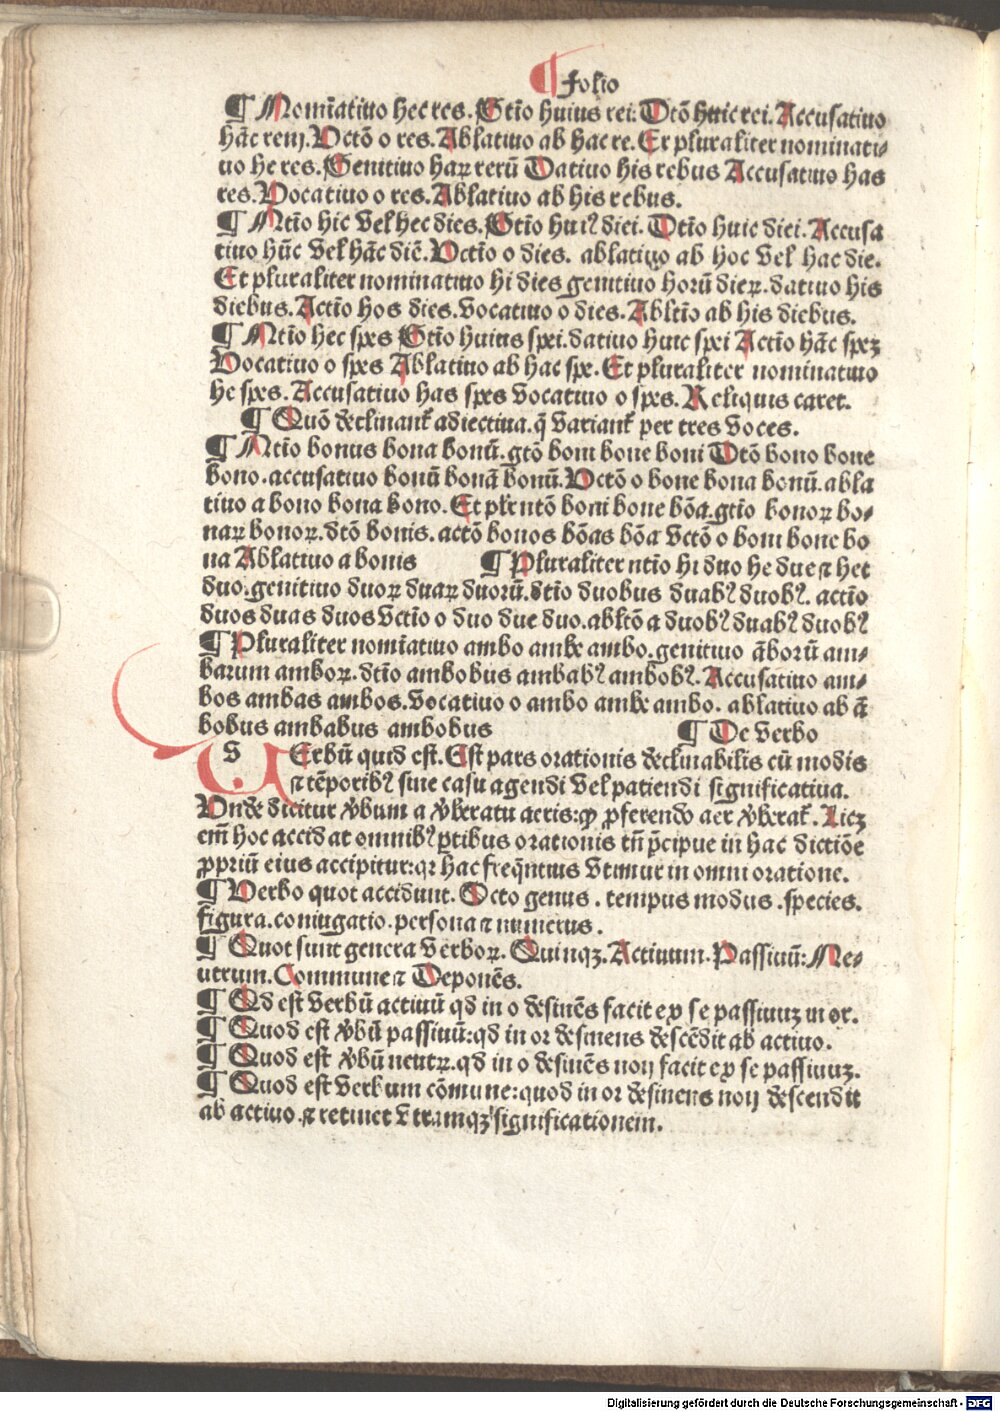 ¶ folio
¶ Nomīatiuo hec res. Gtīo huius rei. Dtō huic rei. Accusatiuo
hāc rem. Vctō o res. Ablatiuo ab hac re. Et pluraliter nominati⸗
uo he res. Genitiuo haꝝ rerū Datiuo his rebus Accusatiuo has
res. Vocatiuo o res. Ablatiuo ab his rebus.
¶ Ntīo hic vel hec dies. Gtīo huiꝰ diei. Dtīo huic diei. Accusa
tiuo hūc vel hāc diē. Vctīo o dies. ablatiuo ab hoc vel hac die.
Et pluraliter nominatiuo hi dies genitiuo horū dieꝝ. datiuo his
diebus. Actīo hos dies. vocatiuo o dies. Abltīo ab his diebus.
¶ Ntīo hec spes Gtīo huius spei. datiuo huic spei Actīo hāc speꝫ
Vocatiuo o spes Ablatiuo ab hac spe. Et pluraliter nominatiuo
he spes. Accusatiuo has spes vocatiuo o spes. Reliquis caret.
¶ Quō declinant᷑ adiectiua. q̄ variant᷑ per tres voces.
¶ Ntīo bonus bona bonū. gtō boni bone boni Dtō bono bone
bono. accusatiuo bonū bonā bonū. Vctō o bone bona bonū. abla
tiuo a bono bona bono. Et plr̄ ntō boni bone bōa. gtīo bonoꝝ bo⸗
naꝝ bonoꝝ. dtō bonis. actō bonos bōas bōa vctō o boni bone bo
na Ablatiuo a bonis ¶ Pluraliter ntīo hi duo he due ⁊ hec
duo. genitiuo duoꝝ duaꝝ duorū. dtīo duobus duabꝰ duobꝰ. actīo
duos duas duos vctīo o duo due duo. abltō a duobꝰ duabꝰ duobꝰ
¶ Pluraliter nomīatiuo ambo ambe ambo. genitiuo āborū am⸗
barum amboꝝ. dtīo ambobus ambabꝰ ambobꝰ. Accusatiuo am⸗
bos ambas ambos. vocatiuo o ambo ambe ambo. ablatiuo ab ā
bobus ambabus ambobus ¶ De verbo
v Erbū quid est. Est pars orationis declinabilis cū modis
⁊ tēporibꝰ sine casu agendi vel patiendi significatiua.
Vnde dicitur v̓bum a v̓beratu aeris: qꝛ ꝓferendo aer v̓berat᷑. Licꝫ
em̄ hoc accidat omnibꝰ ꝑtibus orationis tn̄ p̄cipue in hac dictiōe
ꝓpriū eius accipitur: qꝛ hac freq̄ntius vtimur in omni oratione.
¶ Verbo quot accidunt. Octo genus. tempus modus. species.
figura. coniugatio. persona ⁊ numerus.
¶ Quot sunt genera verboꝝ. Quinqꝫ. Actiuum. Passiuū: Ne⸗
utrum. Commune ⁊ Deponēs.
¶ Qd est verbū actiuū qd in o desinēs facit ex se passiuuꝫ in or.
¶ Quod est v̓bū passiuū: qd in or desinens descēdit ab actiuo.
¶ Quod est v̓bū neutꝝ. qd in o desinēs non facit ex se passiuuꝫ.
¶ Quod est verbum cōmune: quod in or desinens non descendit
ab actiuo. ⁊ retinet vtramqꝫ significationem.
Digitalisierung gefördert durch die Deutsche Forschungsgemeinschaft - DFG